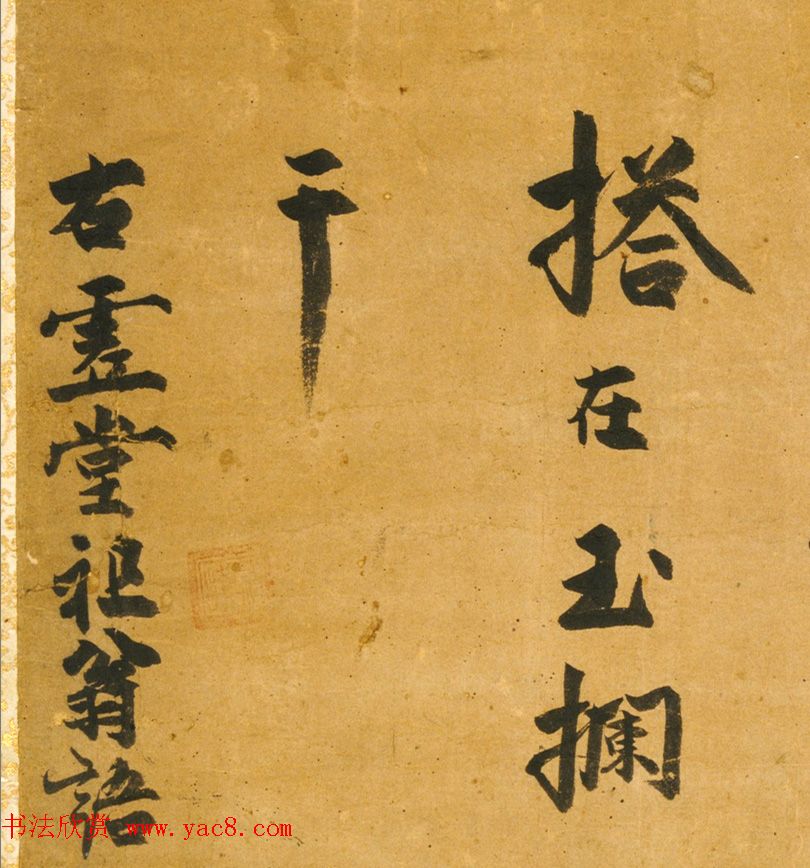 搭在玉攔
干
右虗堂祖翁語
书法欣赏 www.yac8.com